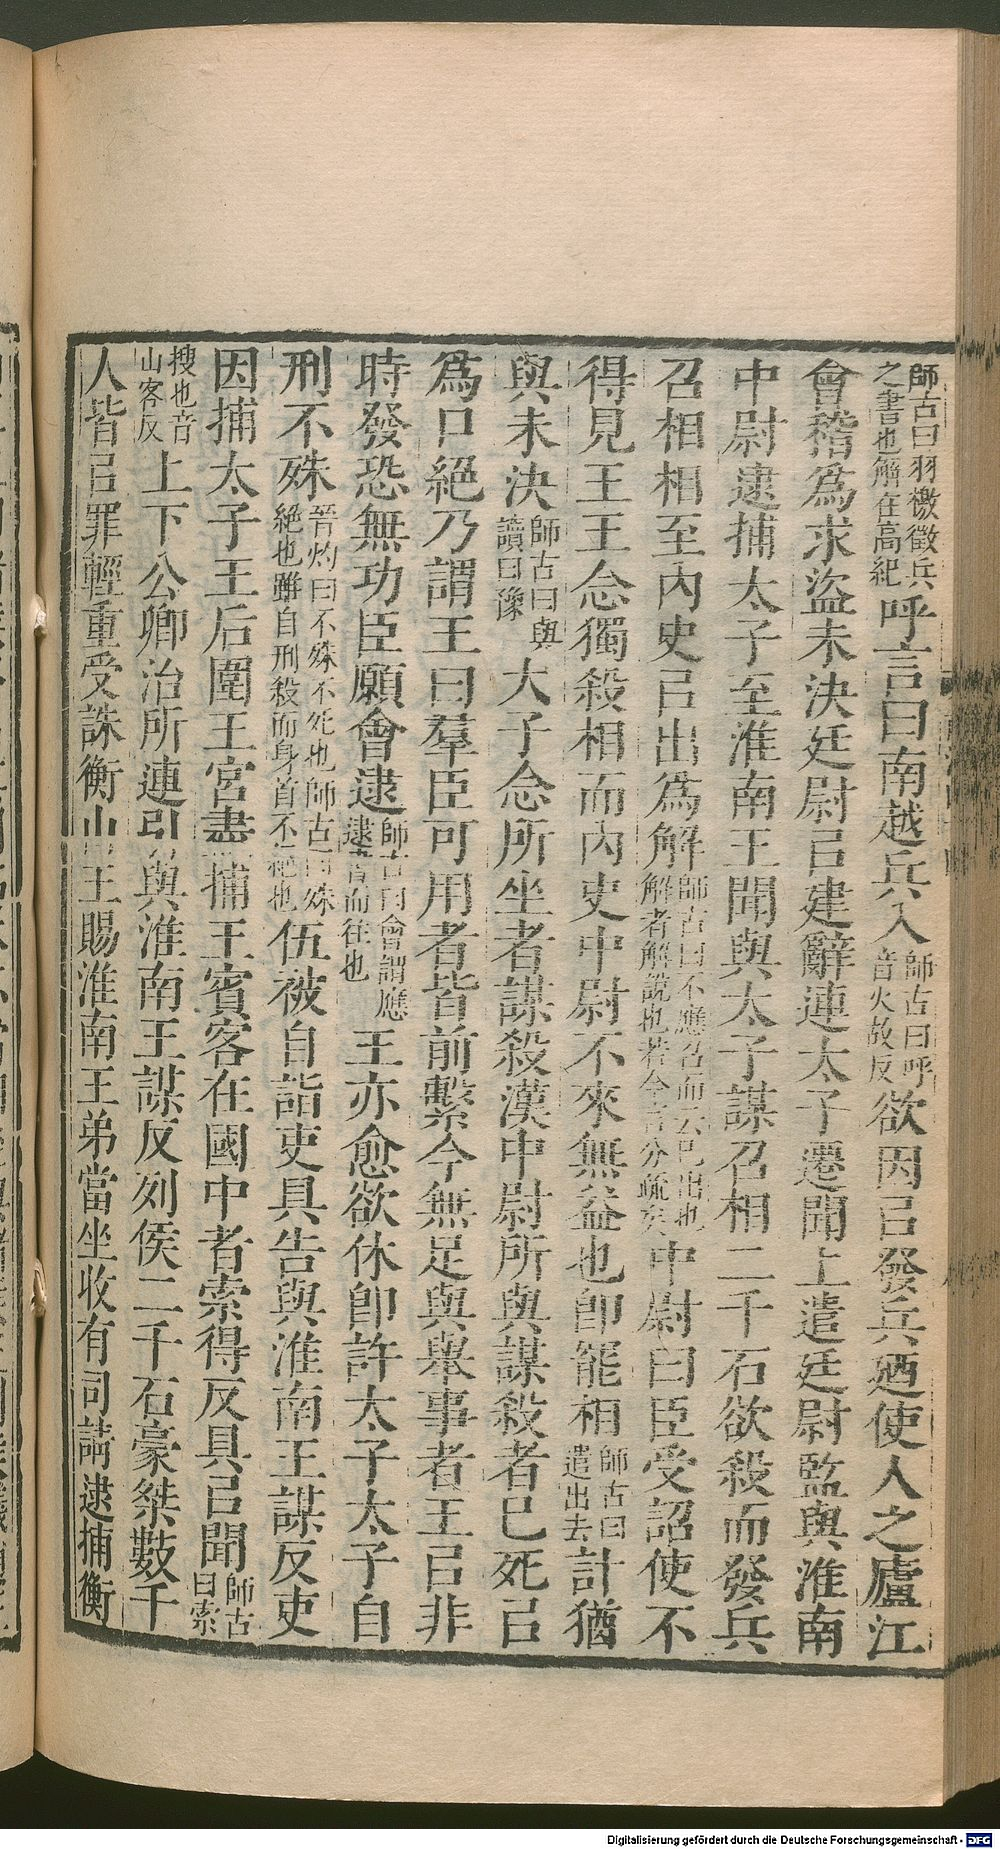 師古曰羽檄徵兵之書也解在高紀呼言曰南越兵入師古曰呼音火故反欲因㠯發兵廼使人之廬江
會稽爲求盜未決廷尉㠯建辭連太子遷聞上遣廷尉監與淮南
中尉逮捕太子至淮南王聞與太子謀召相二千石欲殺而發兵
召相相至內史㠯出爲解師古曰不應召而云已出也解者解說也若今言分疏矣中尉曰臣受詔使不
得見王王念獨殺相而內史中尉不來無益也卽罷相師古曰遣出去計猶
與未決師古曰與讀曰豫太子念所坐者謀殺漢中尉所與謀殺者已死㠯
爲口絕乃謂王曰羣臣可用者皆前繫今無足與舉事者王㠯非
時發恐無功臣願會逮師古曰會謂應逮書而往也王亦愈欲休卽許太子太子自
刑不殊晉灼曰不殊不死也師古曰殊絕也雖自刑殺而身首不絕也伍被自詣吏具告與淮南王謀反吏
因捕太子王后圍王宮盡捕王賓客在國中者索得反具㠯聞師古曰索
搜也音山客反上下公卿治所連引與淮南王謀反列侯二千石豪桀數千
人皆㠯罪輕重受誅衡山王賜淮南王弟當坐收有司請逮捕衡
Digitalisierung gefördert durch die Deutsche Forschungsgemeinschaft - DFG